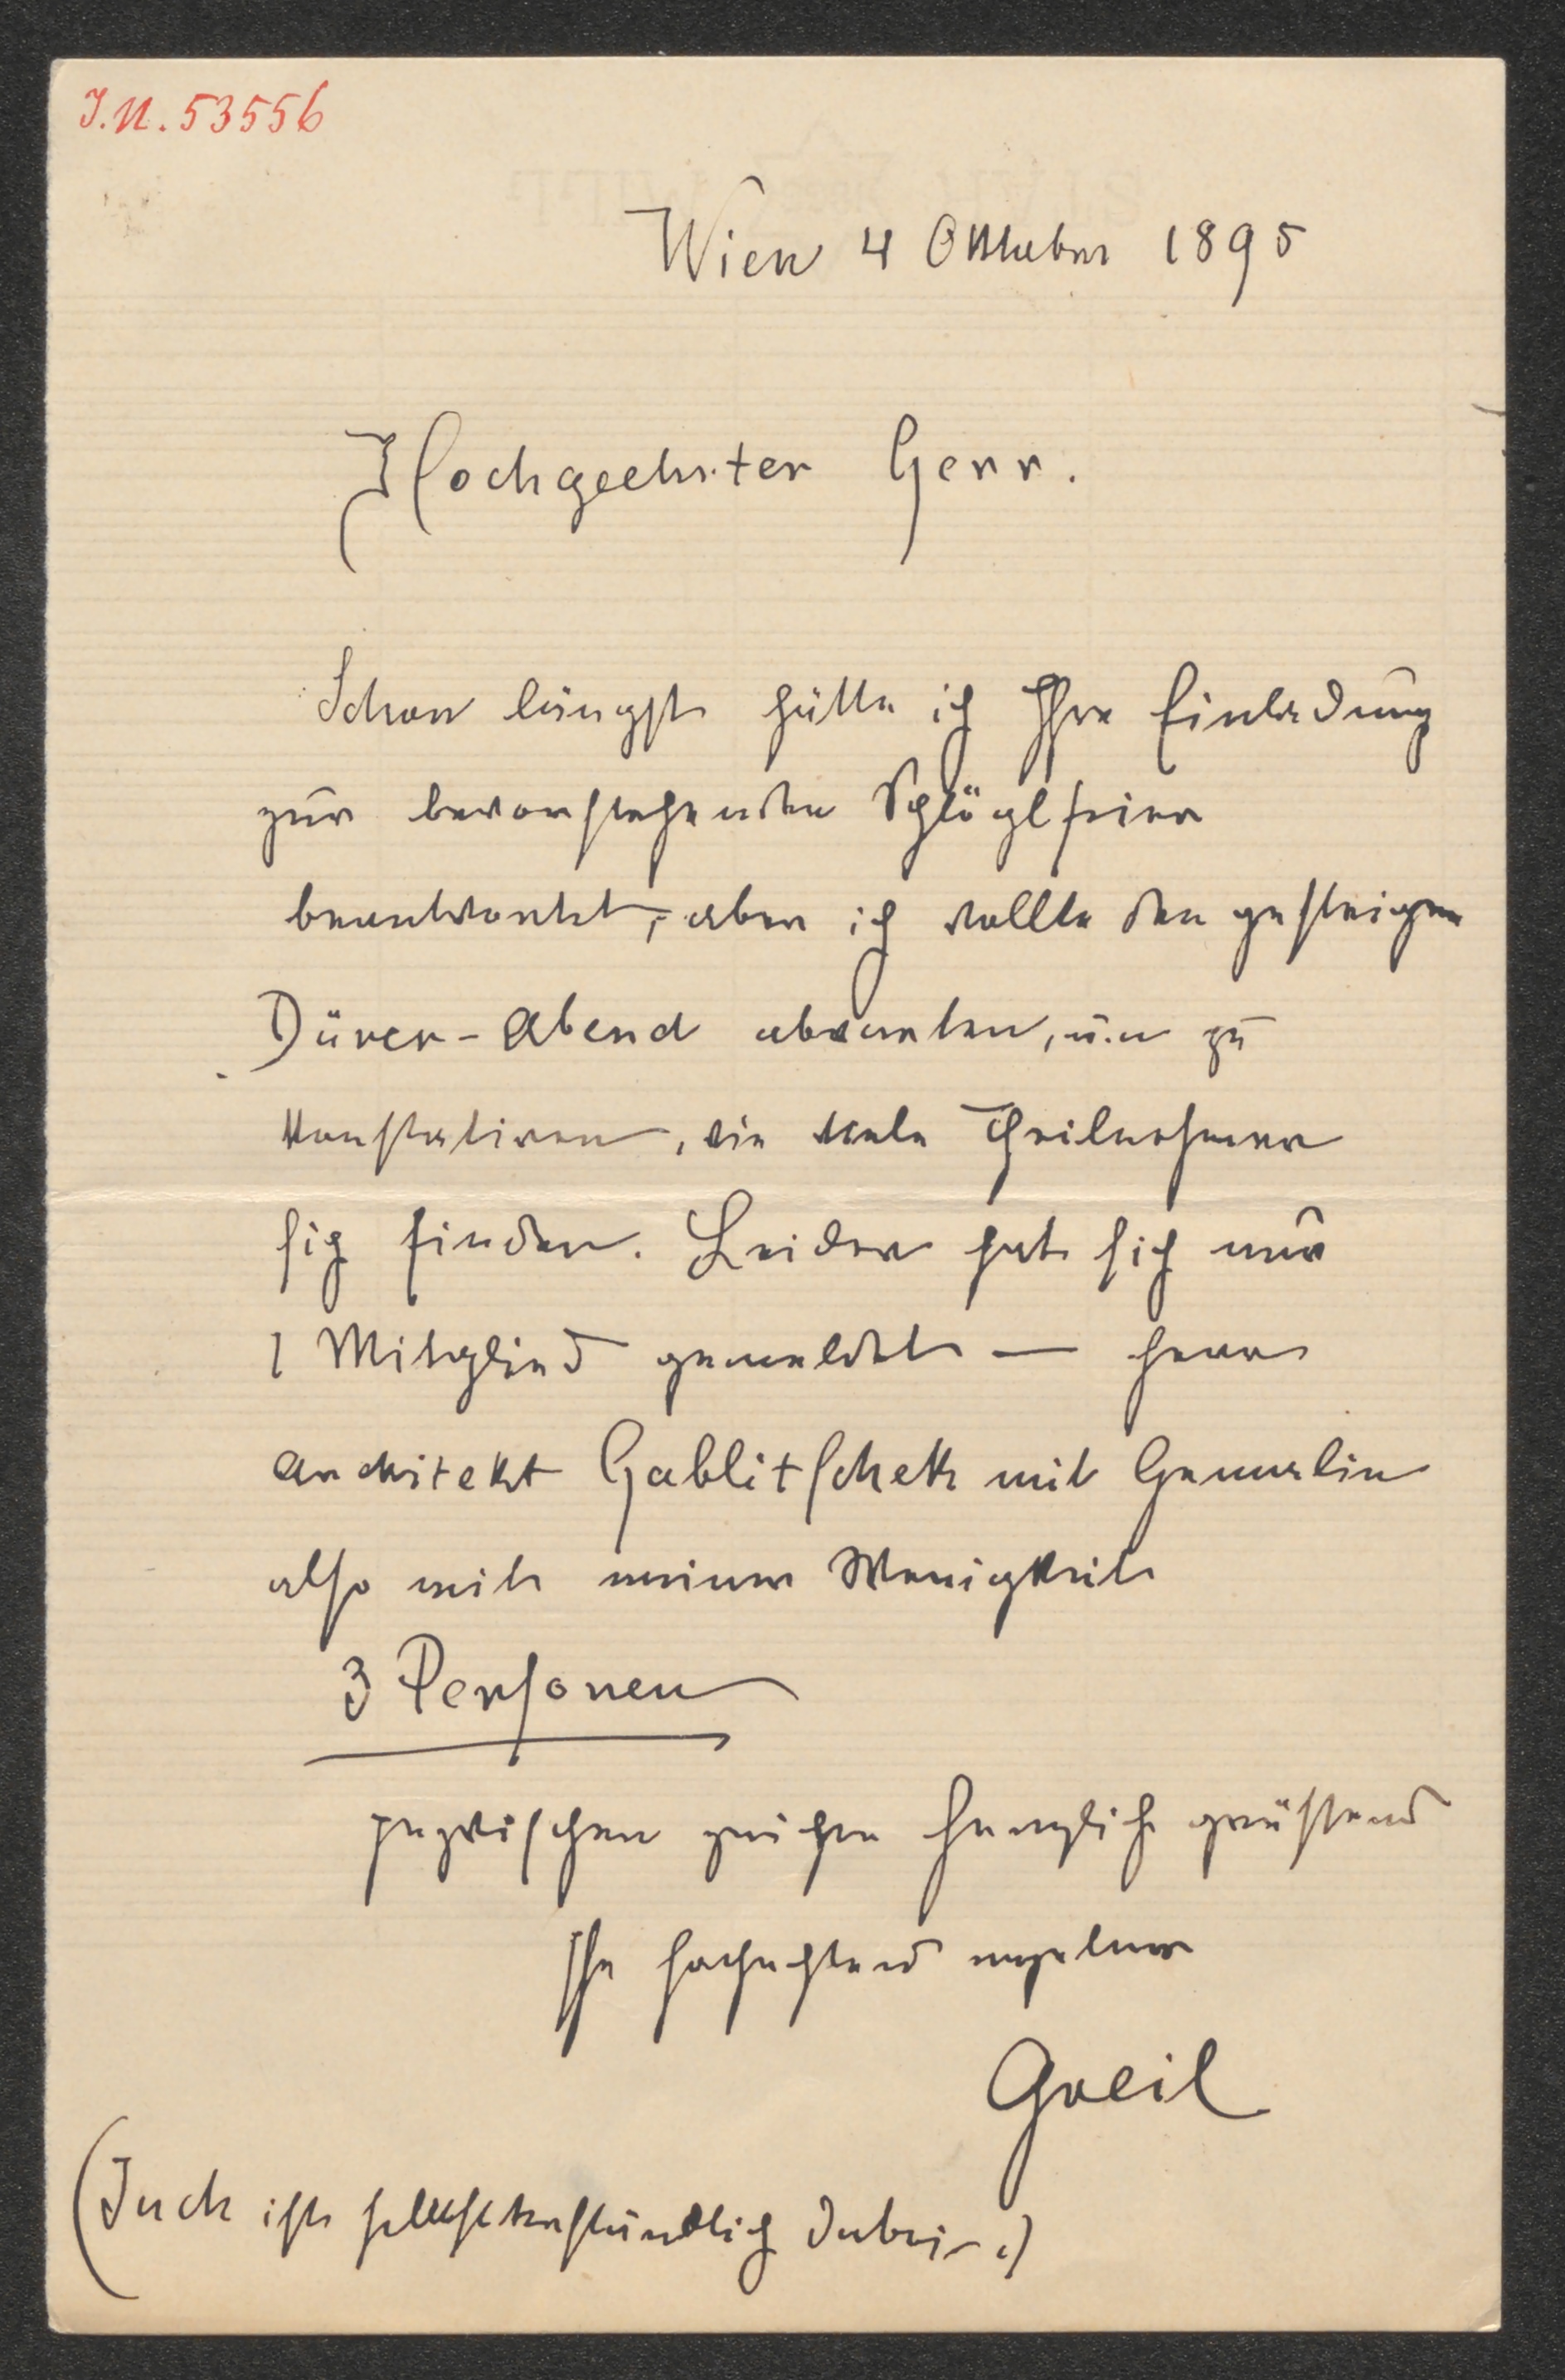 J.N. 53556
Wien 4 Oktober 1895
Hochgeehrter Herr.
Schon längst hätte ich Ihre Einladung
zur bevorstehenden Schlöglfeier
beantwortet, aber ich wollte den gestrigen
Dürer-Abend abwarten, um zu
konstatiren, wie viele Theilnehmer
sich finden. Leider hat sich nur
1 Mitglied gemeldet — Herr
Architekt Hablitschek mit Gemalin
also mit meiner Wenigkeit
3 Personen
Inzwischen herzlich grüssend
Ihr hochachtend ergebener
Greil
(Juch ist selbstverständlich dabei.)